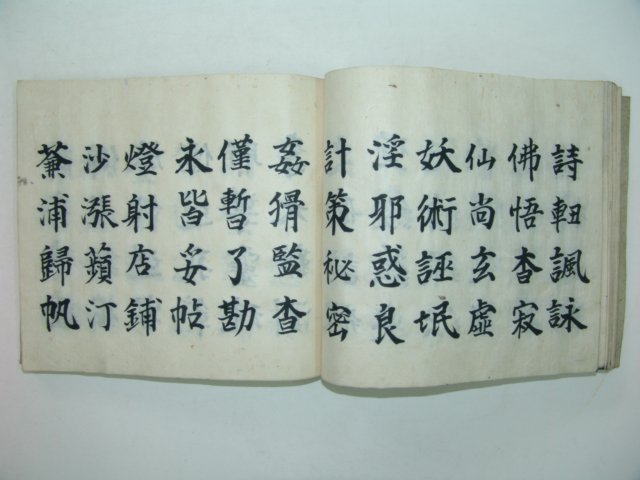 詩軸諷詠
佛悟杳寂
仙尚玄虛
妖術誣氓
淫邪惑良
計策秘密
姦猾監查
僅暫了勘
永皆妥帖
燈射店鋪
沙漲蘋汀
蒹浦歸帆